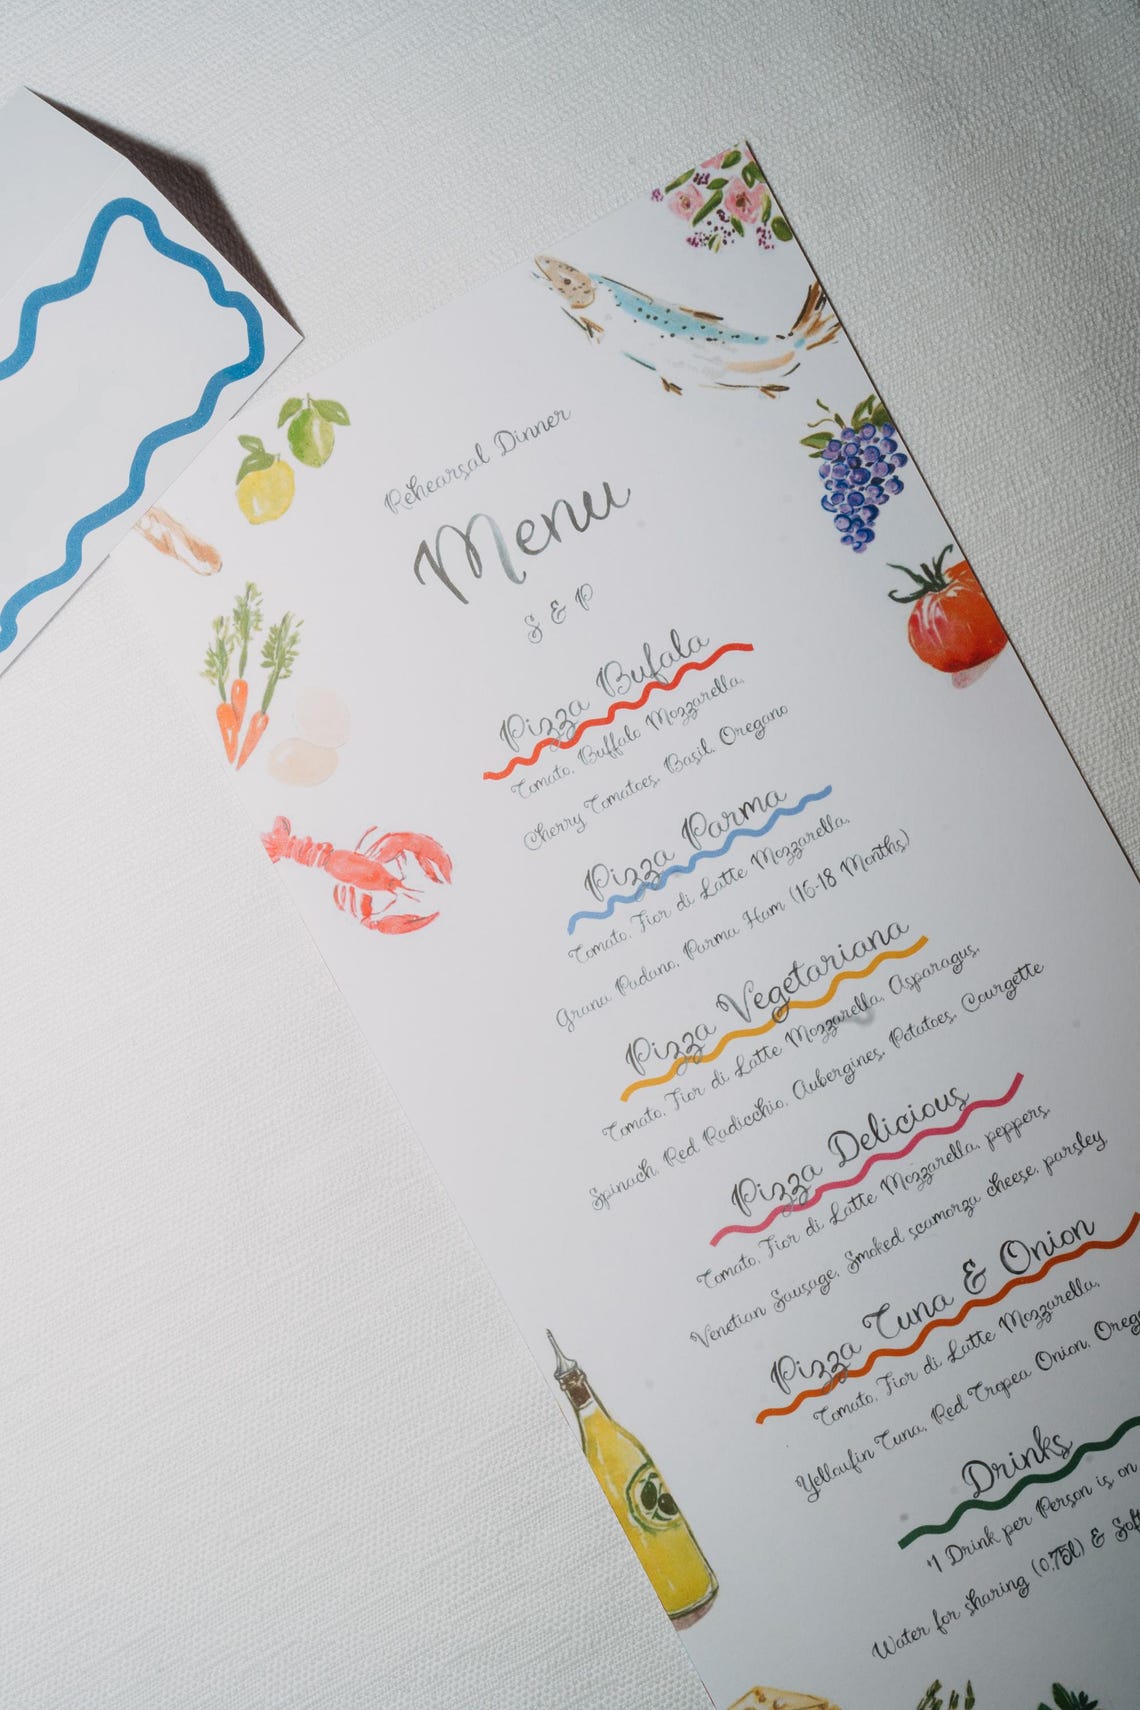 Rehearsal Dinner
Menu
S & P
Pizza Bufala
Tomato, Buffalo Mozzarella,
Cherry Tomatoes, Basil, Oregano
Pizza Parma
Tomato, Fior di Latte Mozzarella,
Grana Padano, Parma Ham (16-18 Months)
Pizza Vegetariana
Tomato, Fior di Latte Mozzarella, Asparagus,
Spinach, Red Radicchio, Aubergines, Potatoes, Courgette
Pizza Delicious
Tomato, Fior di Latte Mozzarella, peppers,
Venetian Sausage, Smoked scamorza cheese, parsley
Pizza Tuna & Onion
Tomato, Fior di Latte Mozzarella,
Yellowfin Tuna, Red Tropea Onion,
Drinks
*1 Drink per Person is on
Water for sharing (0,75l) &